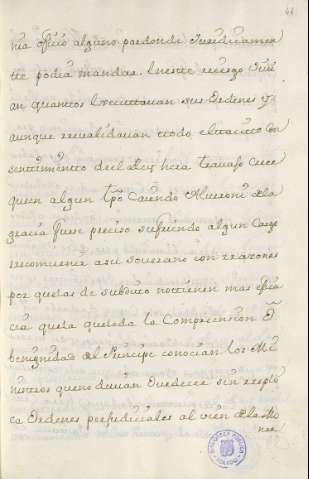 nia oficio alguno pordonde Juridicamen
te podia mandar. Eneste riesgo Vivi
an quantos Executavan sus Ordenes y
aunque revalidavan todo eltacito Con
sentimiento del Rey hera travajo Cree
quen algun tpo Caiendo dela
gracia fuese preciso sufriendo algun Cargo
reconvenir asu soverano con razones
por quelas de subdito notienen mas efica
cia quela queleda la Comprension ò
benignidad del Principe conocian los Mi
nistros queno devian Ovedecer sin replica
Ordenes perjudiciales al vien dela Mo
nar